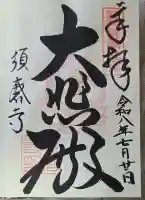 奉拝
令和八年七月廿日
大悲殿
須磨寺